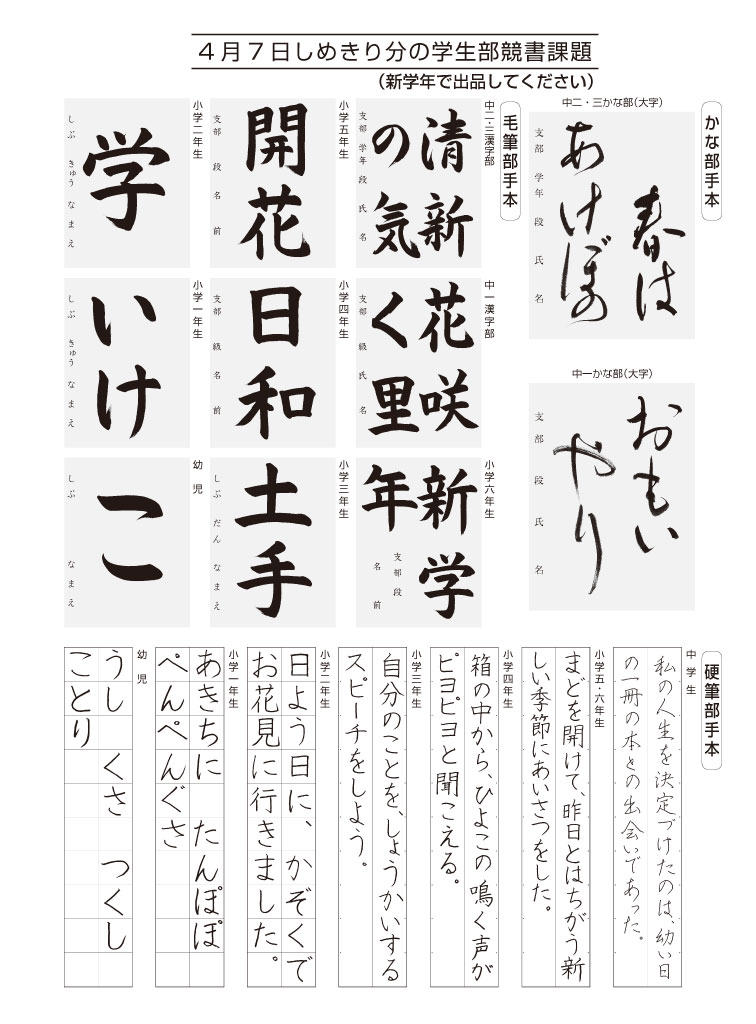 ４月７日しめきり分の学生部競書課題
（新学年で出品してください）
かな部手本
中二・三かな部（大字）
春は
あけぼの
支部 学年 段 氏名
中一かな部（大字）
おもい
やり
支部 段 氏名
毛筆部手本
中二・三漢字部
清新
の気
支部 学年 段 氏名
中一漢字部
花咲
く里
支部 級 氏名
小学六年生
新学
年
支部 段
名前
小学五年生
開花
支部 段 名前
小学四年生
日和
支部 級 名前
小学三年生
土手
しぶ だん なまえ
小学二年生
学
しぶ きゅう なまえ
小学一年生
いけ
しぶ きゅう なまえ
幼児
こ
しぶ なまえ
硬筆部手本
中学生
私の人生を決定づけたのは、幼い日
の一冊の本との出会いであった。
小学五・六年生
まどを開けて、昨日とはちがう新
しい季節にあいさつをした。
小学四年生
箱の中から、ひよこの鳴く声が
ピヨピヨと聞こえる。
小学三年生
自分のことを、しょうかいする
スピーチをしよう。
小学二年生
日よう日に、かぞくで
お花見に行きました。
小学一年生
あきちに たんぽぽ
ぺんぺんぐさ
幼児
うし くさ つくし
ことり